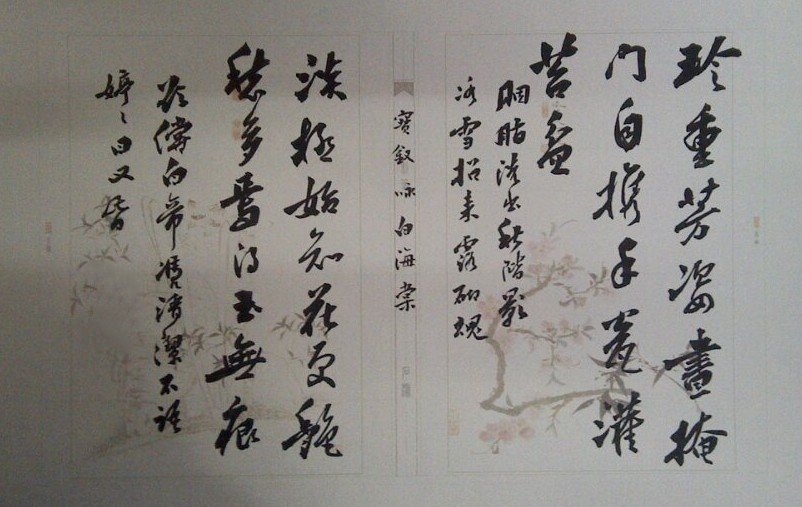 珍重芳姿晝掩
門自携手瓮灌
苔盆
胭脂洗出秋階影
冰雪招来露砌魂
寶釵咏白海棠
淡極始知花更艷
愁多焉得玉無痕
欲償白帝憑清潔不語
婷〻日又昏